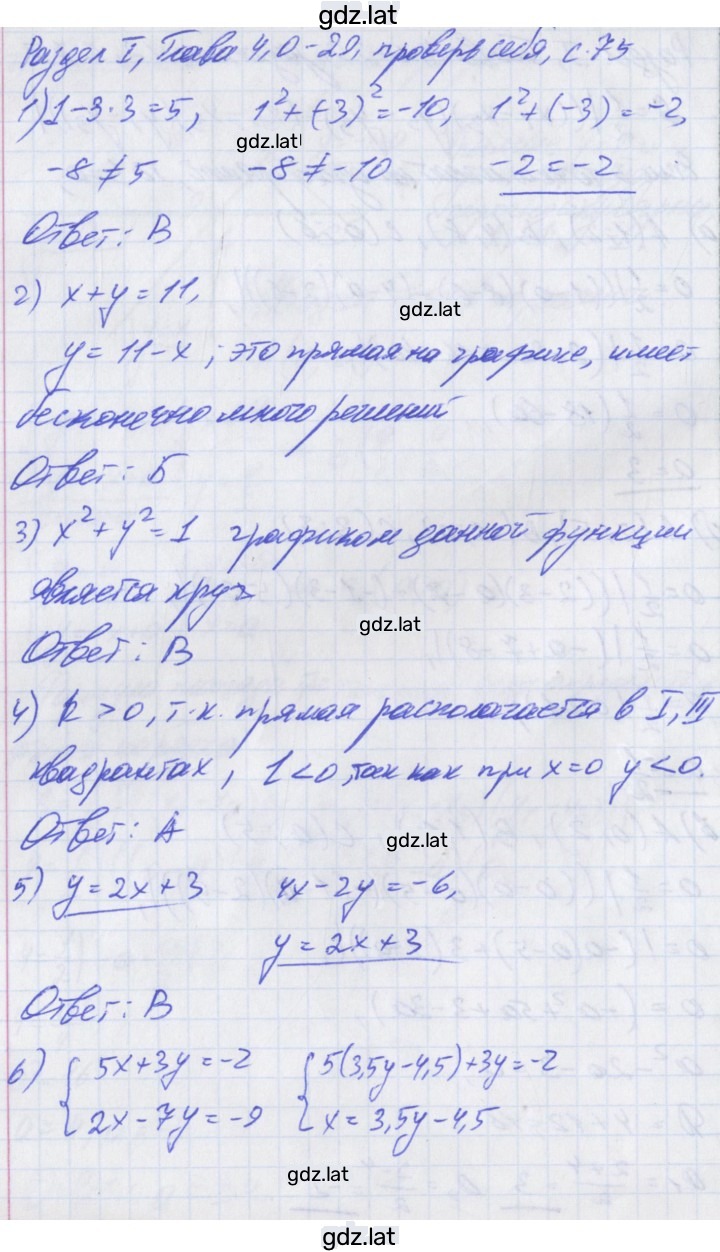 gdz.lat
Раздел I, Глава 4, О-29, проверь себя, с.75
1) 1-3·3=5, 1²+(-3)²=-10, 1²+(-3)=-2,
gdz.lat
-8≠5 -8≠-10 -2=-2
Ответ: В
2) x+y=11,
gdz.lat
y=11-x, это прямая на графике, имеет
бесконечно много решений
Ответ: Б
3) x²+y²=1 графиком данной функции
является круг
gdz.lat
Ответ: В
4) k>0, т.к. прямая располагается в I, III
квадрантах, l<0, так как при x=0 y<0.
Ответ: А
gdz.lat
5) y=2x+3 4x-2y=-6,
y=2x+3
Ответ: В
6) { 5x+3y=-2 { 5(3,5y-4,5)+3y=-2
2x-7y=-9 x=3,5y-4,5
gdz.lat
gdz.lat